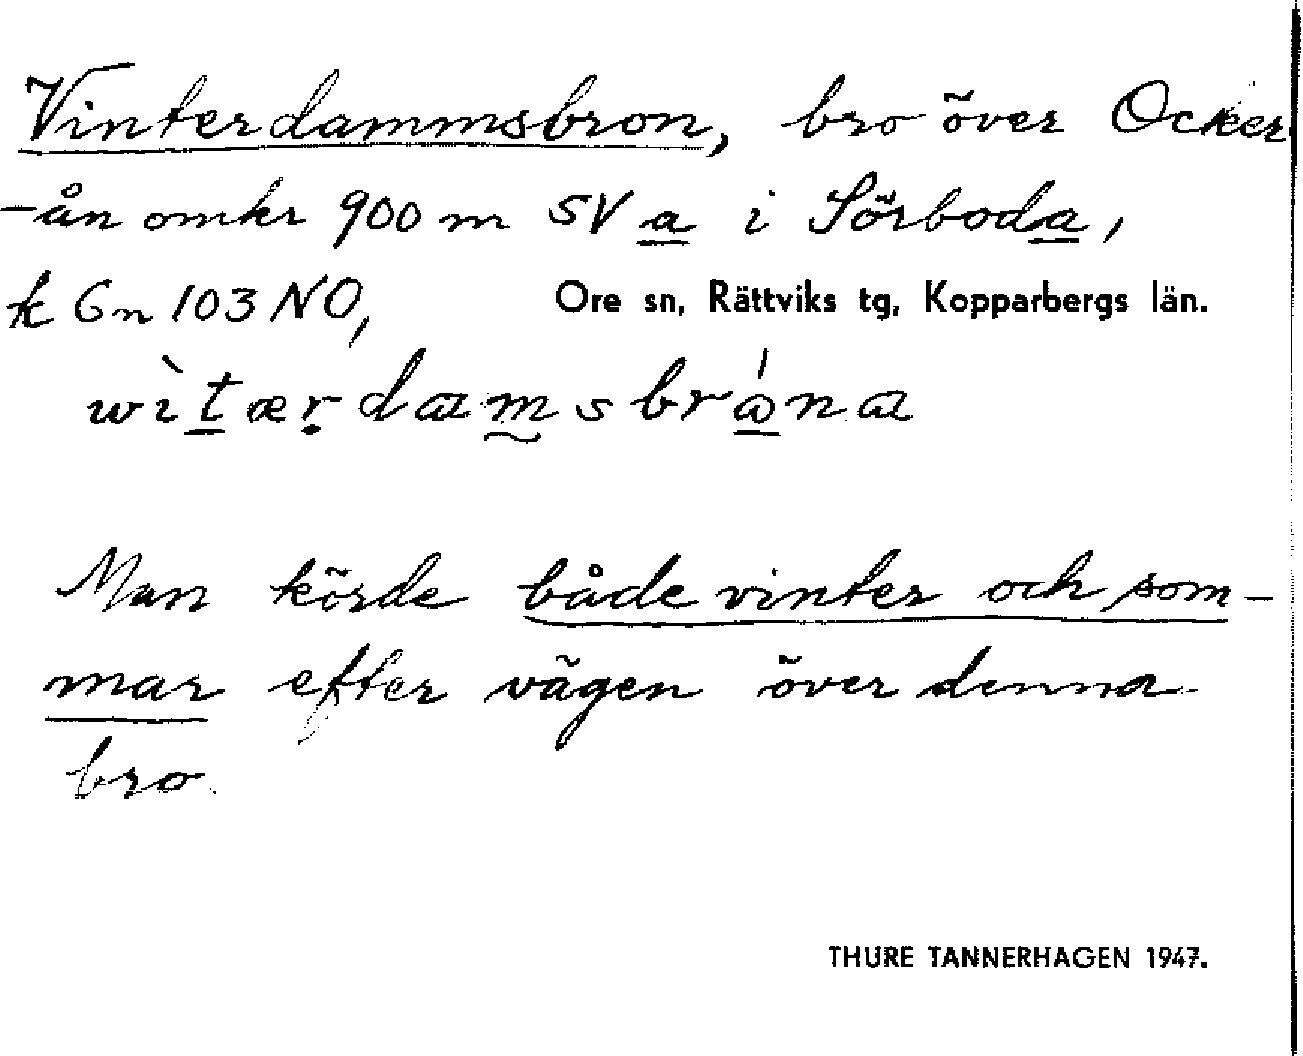 Vinterdammsbron, bro över Ocker
-ån omkr 900 m SV a i Sörboda,
k 6n 103 NO, Ore sn, Rättviks tg, Kopparbergs län.
Man körde både vinter och som-
mar efter vägen över denna
bro.
THURE TANNERHAGEN 1947.